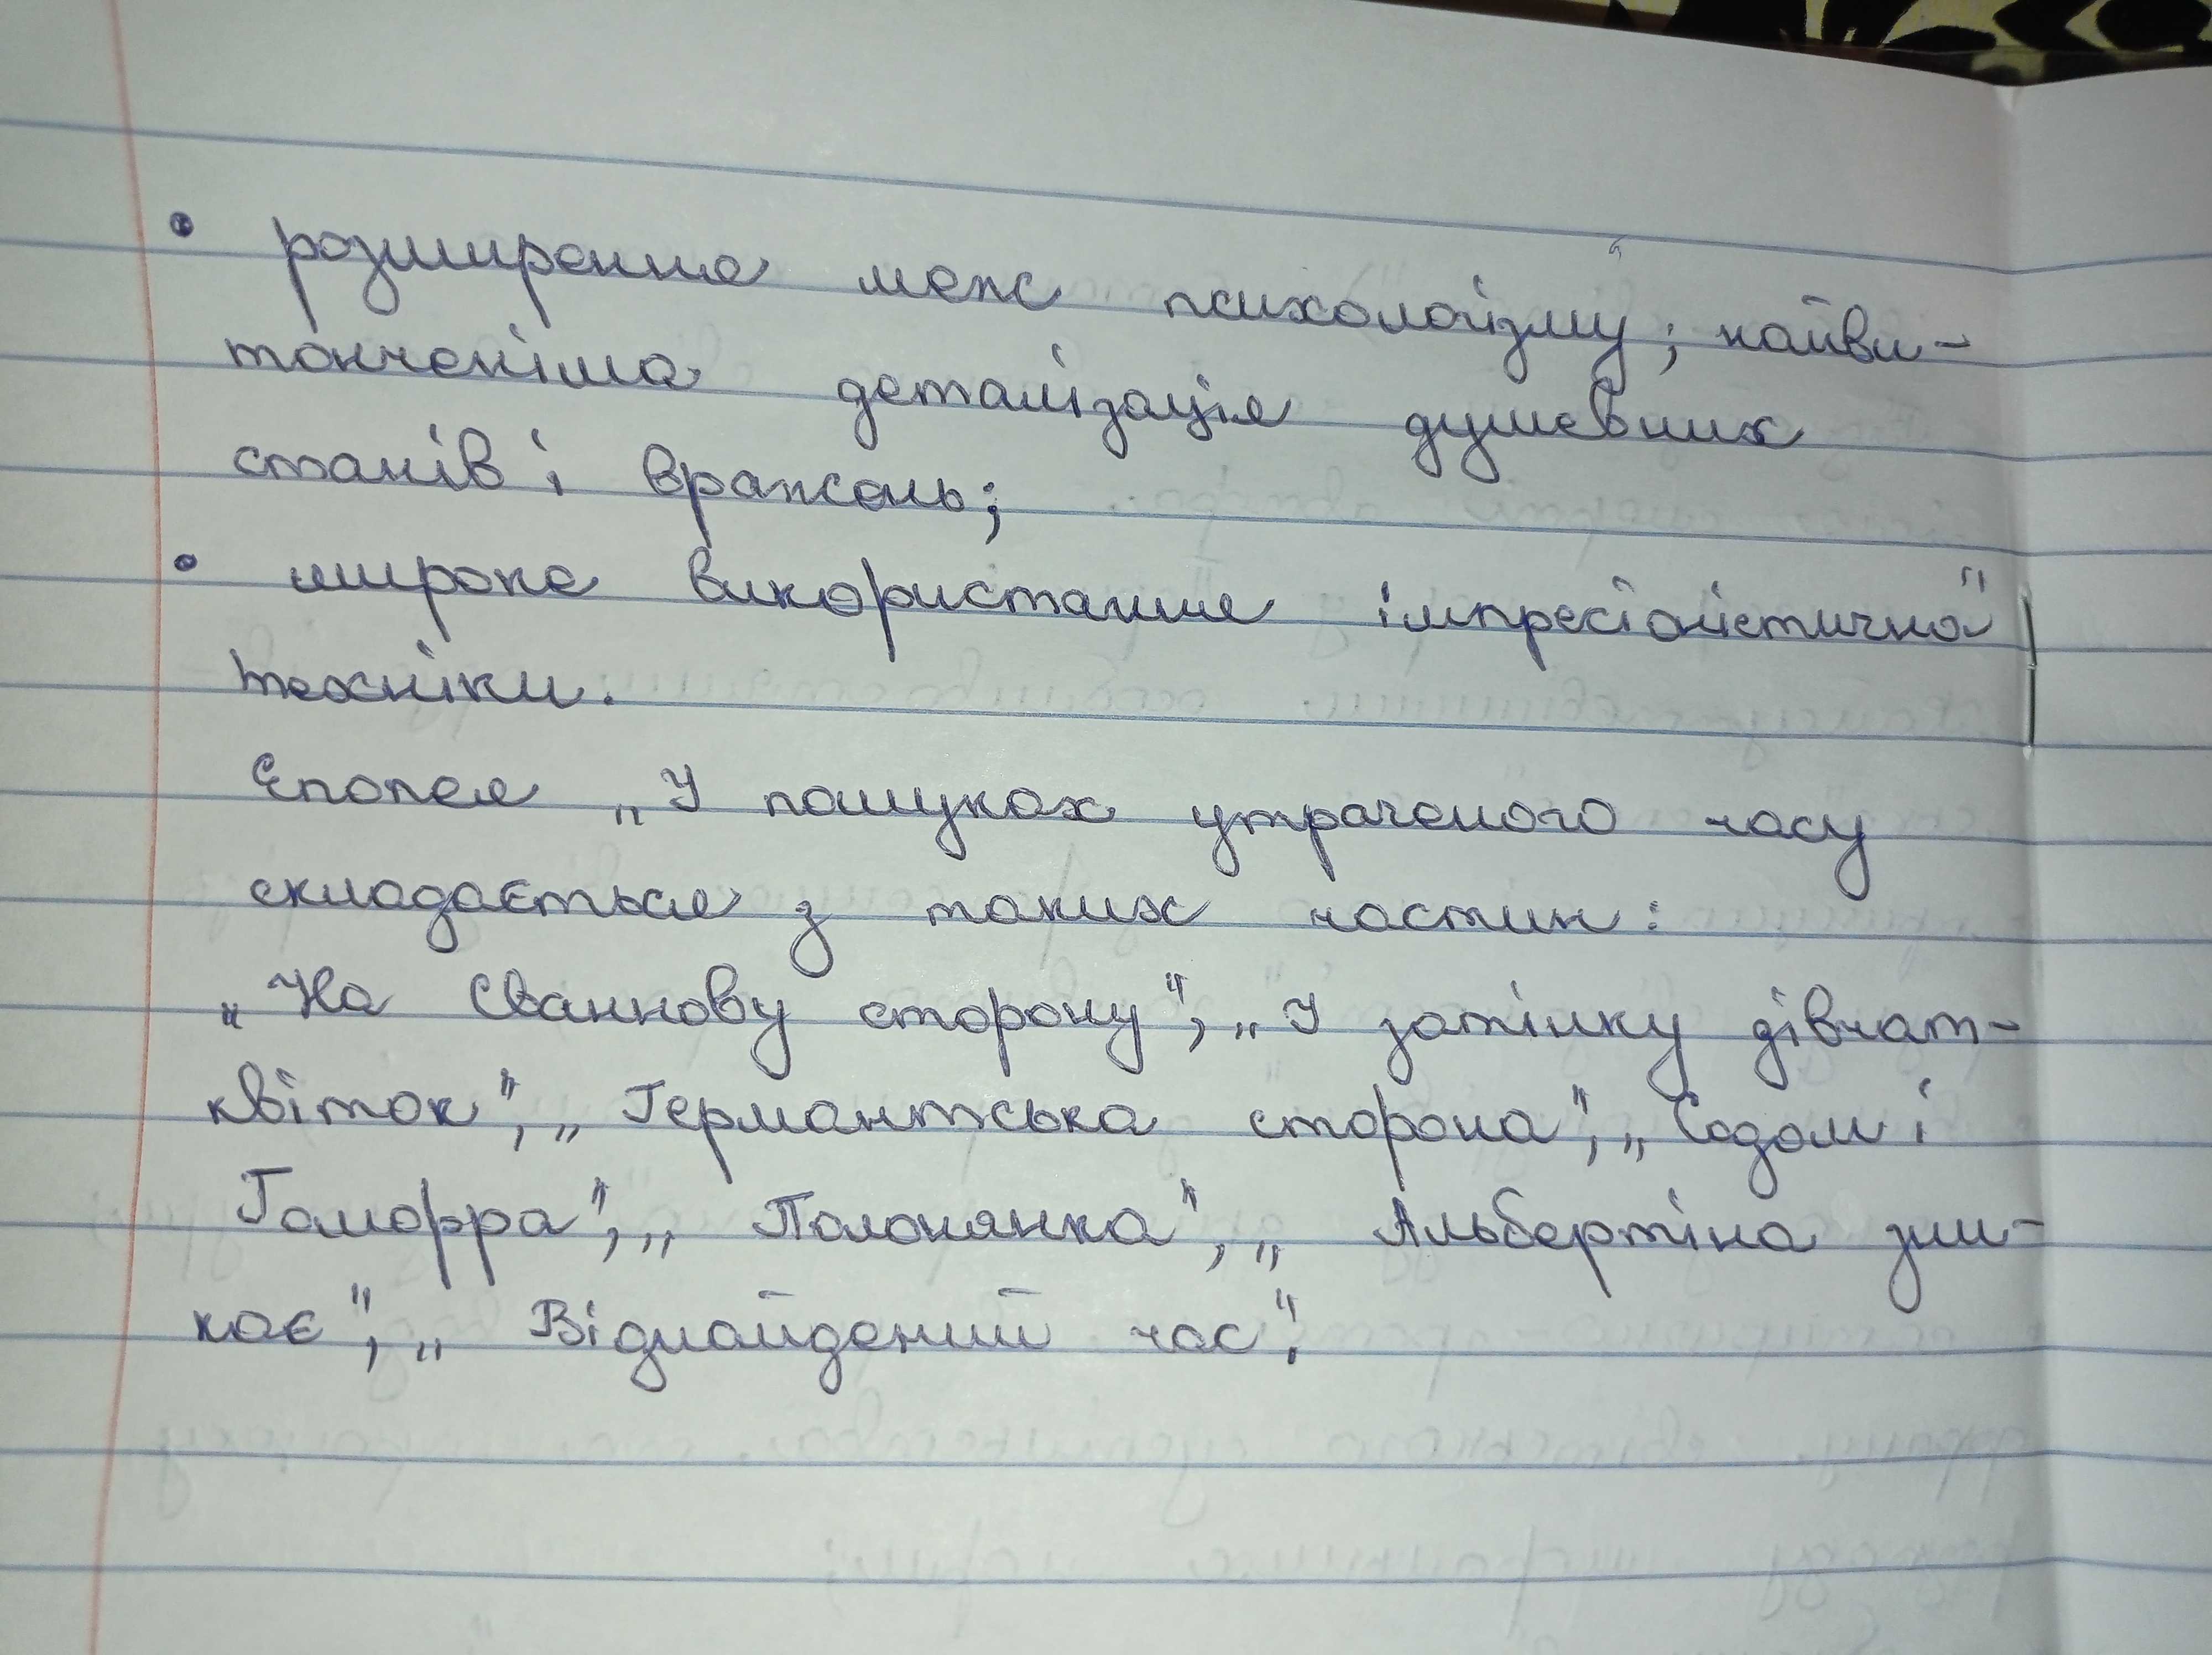 • розширення меж психологізму; найви-
тонченіша деталізація душевних
станів і вражень;
• широке використання імпресіоністичної
техніки.
Епопея „У пошуках утраченого часу
складається з таких частин:
„На Сваннову сторону", „У затінку дівчат-
квіток", „Германтська сторона", „Содом і
Гоморра", „Полонянка", „Альбертіна зни-
кає", „Віднайдений час".